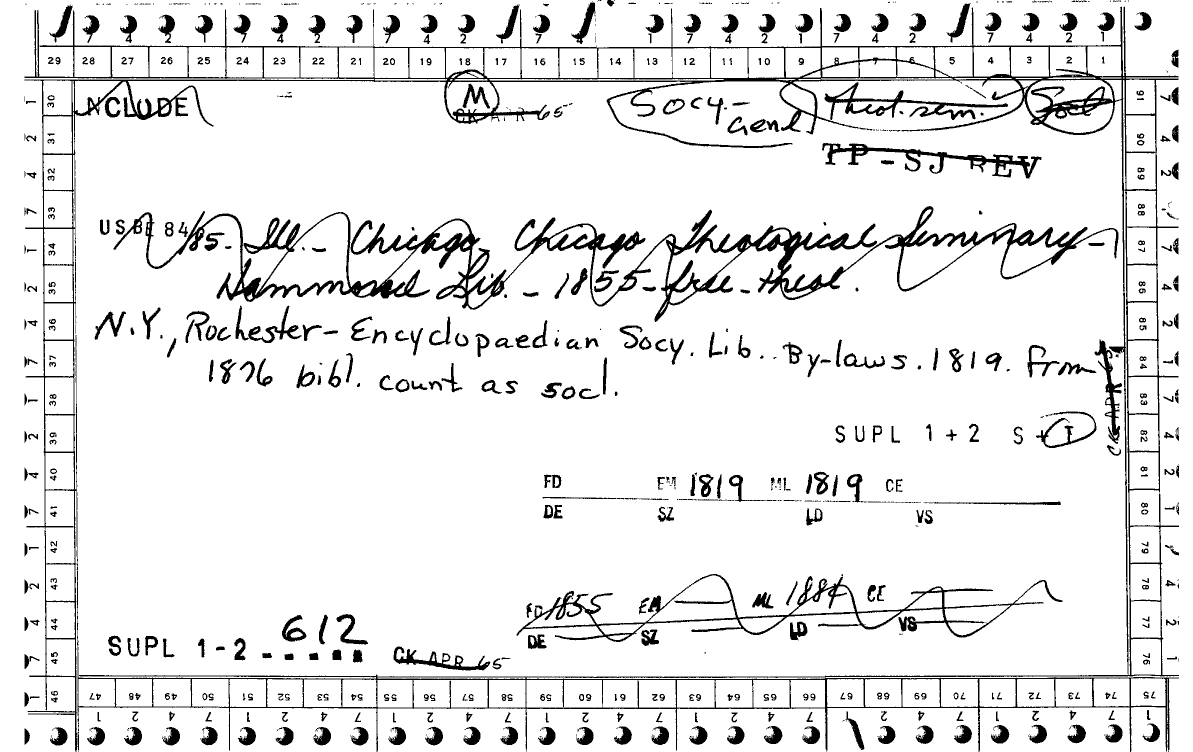 7 4 2 1 7 4 2 1 7 4 2 1 7 4 1 7 4 2 1 7 4 2 1 7 4 2 1
29 28 27 26 25 24 23 22 21 20 19 18 17 16 15 14 13 12 11 10 9 8 7 6 5 4 3 2 1
NCLUDE M Socy.- Theol. sem. Socl
CK APR 65 Genl
TP-SJ REV
USBE 84/85- Ill. - Chicago- Chicago Theological Seminary-
Hammond Lib. - 1855- free- theol.
N.Y., Rochester- Encyclopaedian Socy. Lib.. By-laws. 1819. From
1876 bibl. count as socl.
CK APR 65
SUPL 1+2 S+T
FD EM 1819 ML 1819 CE
DE SZ LD VS
FD 1855 EM — ML 1884 CE —
DE — SZ — LD — VS —
SUPL 1-2 - 612
CK APR 65
30 31 32 33 34 35 36 37 38 39 40 41 42 43 44 45 46
91 90 89 88 87 86 85 84 83 82 81 80 79 78 77 76 75
47 48 49 50 51 52 53 54 55 56 57 58 59 60 61 62 63 64 65 66 67 68 69 70 71 72 73 74
1 2 4 7 1 2 4 7 1 2 4 7 1 2 4 7 1 2 4 7 1 2 4 7 1 2 4 7